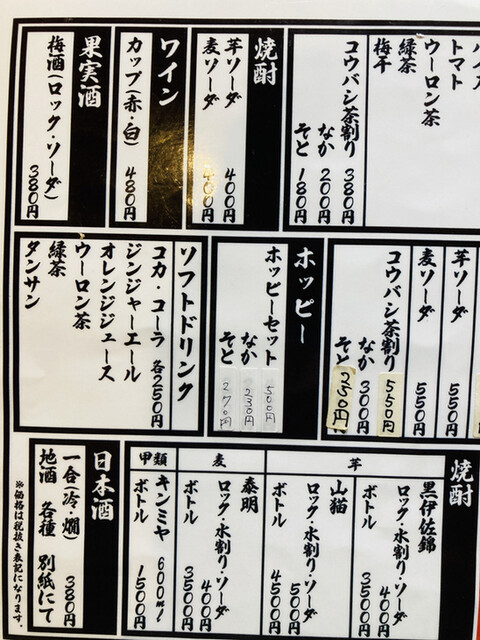 トマト
ウーロン茶
緑茶
梅干
コウバシ茶割り 380円
なか 200円
そと 180円
焼酎
芋ソーダ 400円
麦ソーダ 400円
ワイン
カップ(赤・白) 480円
果実酒
梅酒(ロック・ソーダ) 380円
芋ソーダ 550円
麦ソーダ 550円
コウバシ茶割り 550円
なか 300円
そと 250円
ホッピー
ホッピーセット 500円
なか 230円
そと 270円
ソフトドリンク
コカ・コーラ 各250円
ジンジャーエール
オレンジジュース
ウーロン茶
緑茶
タンサン
焼酎
芋
黒伊佐錦
ロック・水割り・ソーダ 400円
ボトル 3500円
山猫
ロック・水割り・ソーダ 500円
ボトル 4500円
麦
泰明
ロック・水割り・ソーダ 400円
ボトル 3500円
甲類
キンミヤ 600ml
ボトル 1500円
日本酒
一合(冷・燗) 380円
地酒 各種 別紙にて
※価格は税抜き表記になります。